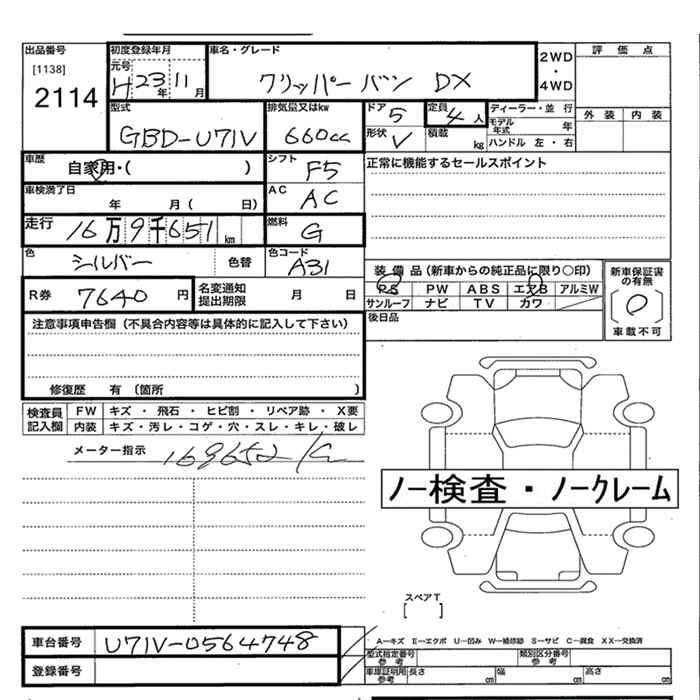 出品番号 初度登録年月 車名・グレード 2WD・4WD 評価点
[1138] 元号 H23年11月 クリッパーバン DX
2114
型式 排気量又はkw ドア 5 定員 4人 ディーラー・並行 外装 内装
GBD-U71V 660cc 形状 V 積載 kg モデル年式 年
ハンドル 左・右
車歴 自家用・( ) シフト F5 正常に機能するセールスポイント
車検満了日 年 月( 日) AC AC
走行 16万9千651km 燃料 G
色 シルバー 色替 色コード A31
装備品(新車からの純正品に限り○印) 新車保証書の有無
R券 7640円 名変通知提出期限 月 日 PS PW ABS エアB アルミW
サンルーフ ナビ TV カワ 〔0〕
注意事項申告欄(不具合内容等は具体的に記入して下さい) 後日品 車載不可
修復歴 有(箇所 )
検査員記入欄 FW キズ・飛石・ヒビ割・リペア跡・X要
内装 キズ・汚レ・コゲ・穴・スレ・キレ・破レ
メーター指示 169652
ノー検査・ノークレーム
スペアT
[ ]
車台番号 U71V-0564748 A−キズ E−エクボ U−凹み W−補修跡 S−サビ C−腐食 XX−交換済
登録番号 型式指定番号 参考 類別区分番号 参考
車庫証明用 参考 長さ cm 幅 cm 高さ cm